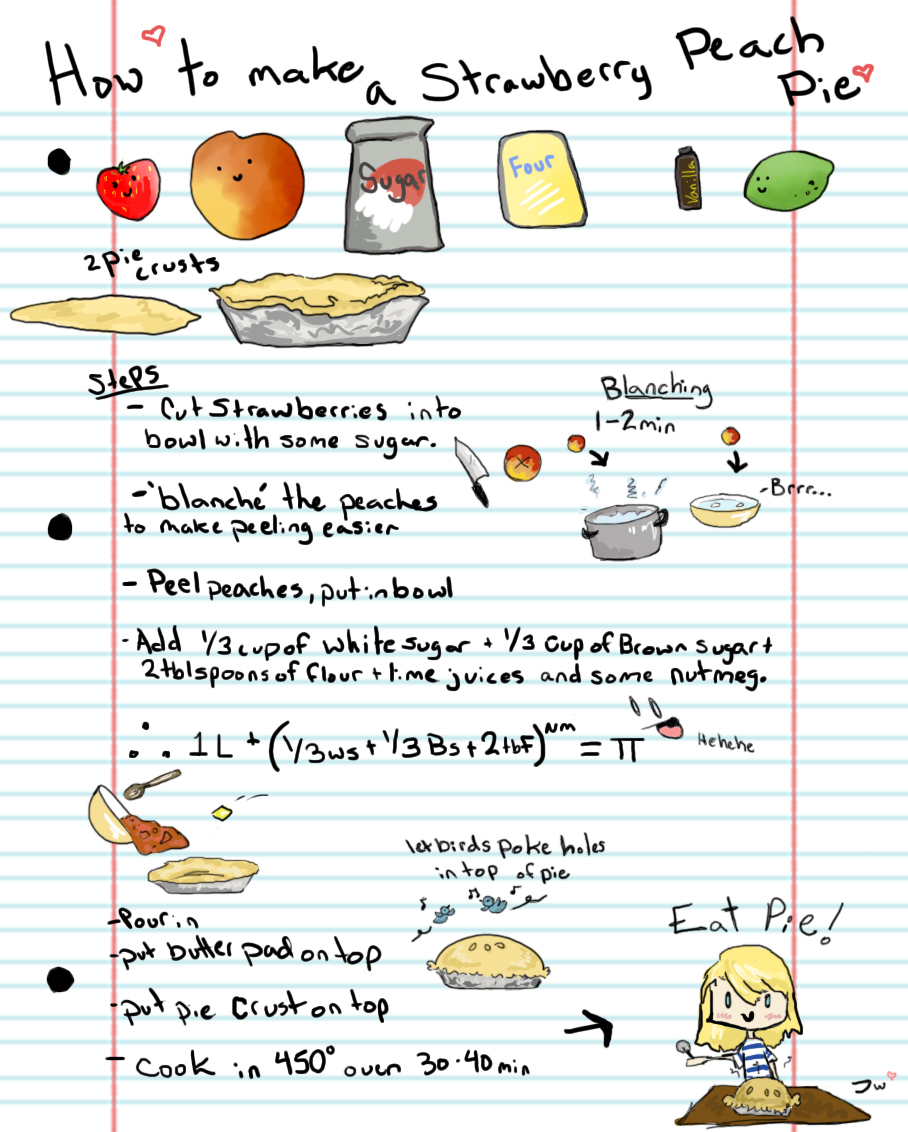 How to make a Strawberry Peach Pie
Sugar
Four
Vanilla
2 pie crusts
Steps
- Cut Strawberries into
bowl with some sugar.
- 'blanche' the peaches
to make peeling easier
Blanching
1-2 min
-Brrr...
- Peel peaches, put in bowl
- Add 1/3 cup of white sugar + 1/3 cup of Brown sugar +
2 tblspoons of flour + lime juices and some nutmeg.
∴ 1L + (1/3ws + 1/3 Bs + 2tbF)^Nm = π
Hehehe
let birds poke holes
in top of pie
-Pour in
-put butter pad on top
-put pie crust on top
- Cook in 450° oven 30-40 min
Eat Pie!
JW